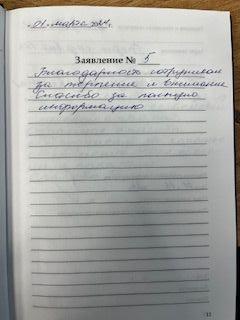 01. март 2024г.
Заявление № 5
Благодарность сотрудникам
за терпение и внимание
Спасибо за полную
информацию
11